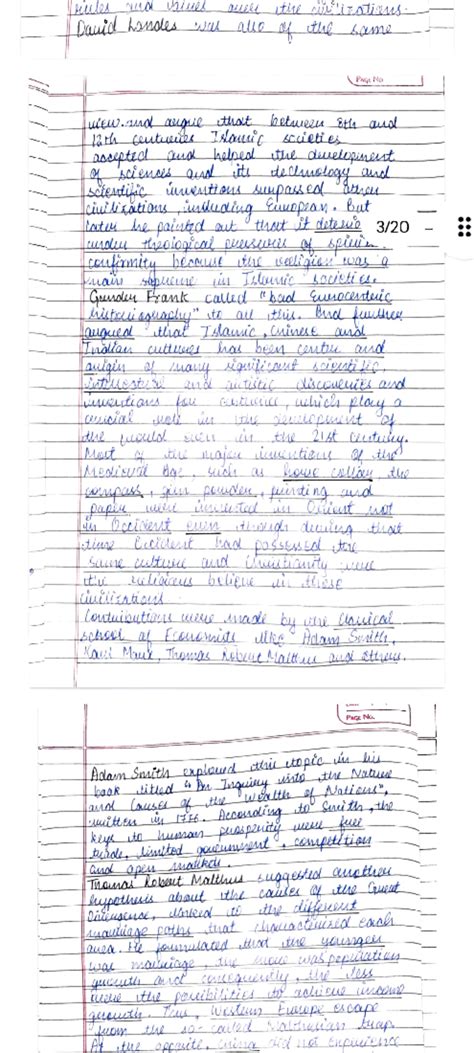 rules and values over the civilizations.
David Landes was also of the same
Page No.
view and argue that between 8th and
12th centuries Islamic societies
accepted and helped the development
of sciences and its technology and
scientific inventions surpassed other
civilizations including European. But
later he pointed out that it
3/20
under theological pressures of
conformity because the religion was a
main supreme in Islamic societies.
Gunder Frank called "bad Eurocentric
historiography" to all this. And further
argued that Islamic, Chinese and
Indian cultures has been center and
origin of many significant scientific,
and artistic discoveries and
inventions for centuries, which play a
crucial role in the development of
the world even in the 21st century.
Most of the major inventions of the
Medieval Age, such as horse collar, the
compass, gun powder, printing and
paper were invented in Orient not
in Occident even though during that
time Occident had possessed the
same culture and Christianity were
the religious believe in these
civilizations
Contributions were made by the classical
school of Economists like Adam Smith,
Karl Marx, Thomas Robert Malthus and others.
Page No.
Adam Smith explored this topic in his
book titled "An Inquiry into the Nature
and Causes of the Wealth of Nations",
written in 1776. According to Smith, the
keys to human prosperity were free
trade, limited government, competition
and open markets.
Thomas Robert Malthus suggested another
hypothesis about the causes of the Great
linked to the different
marriage paths that characterized each
area. He formulated that the younger
was marriage, the more was population
growth and consequently, the less
were the possibilities to achieve income
growth. Thus, Western Europe escape
from the so-called Malthusian trap.
At the opposite, China did not experience